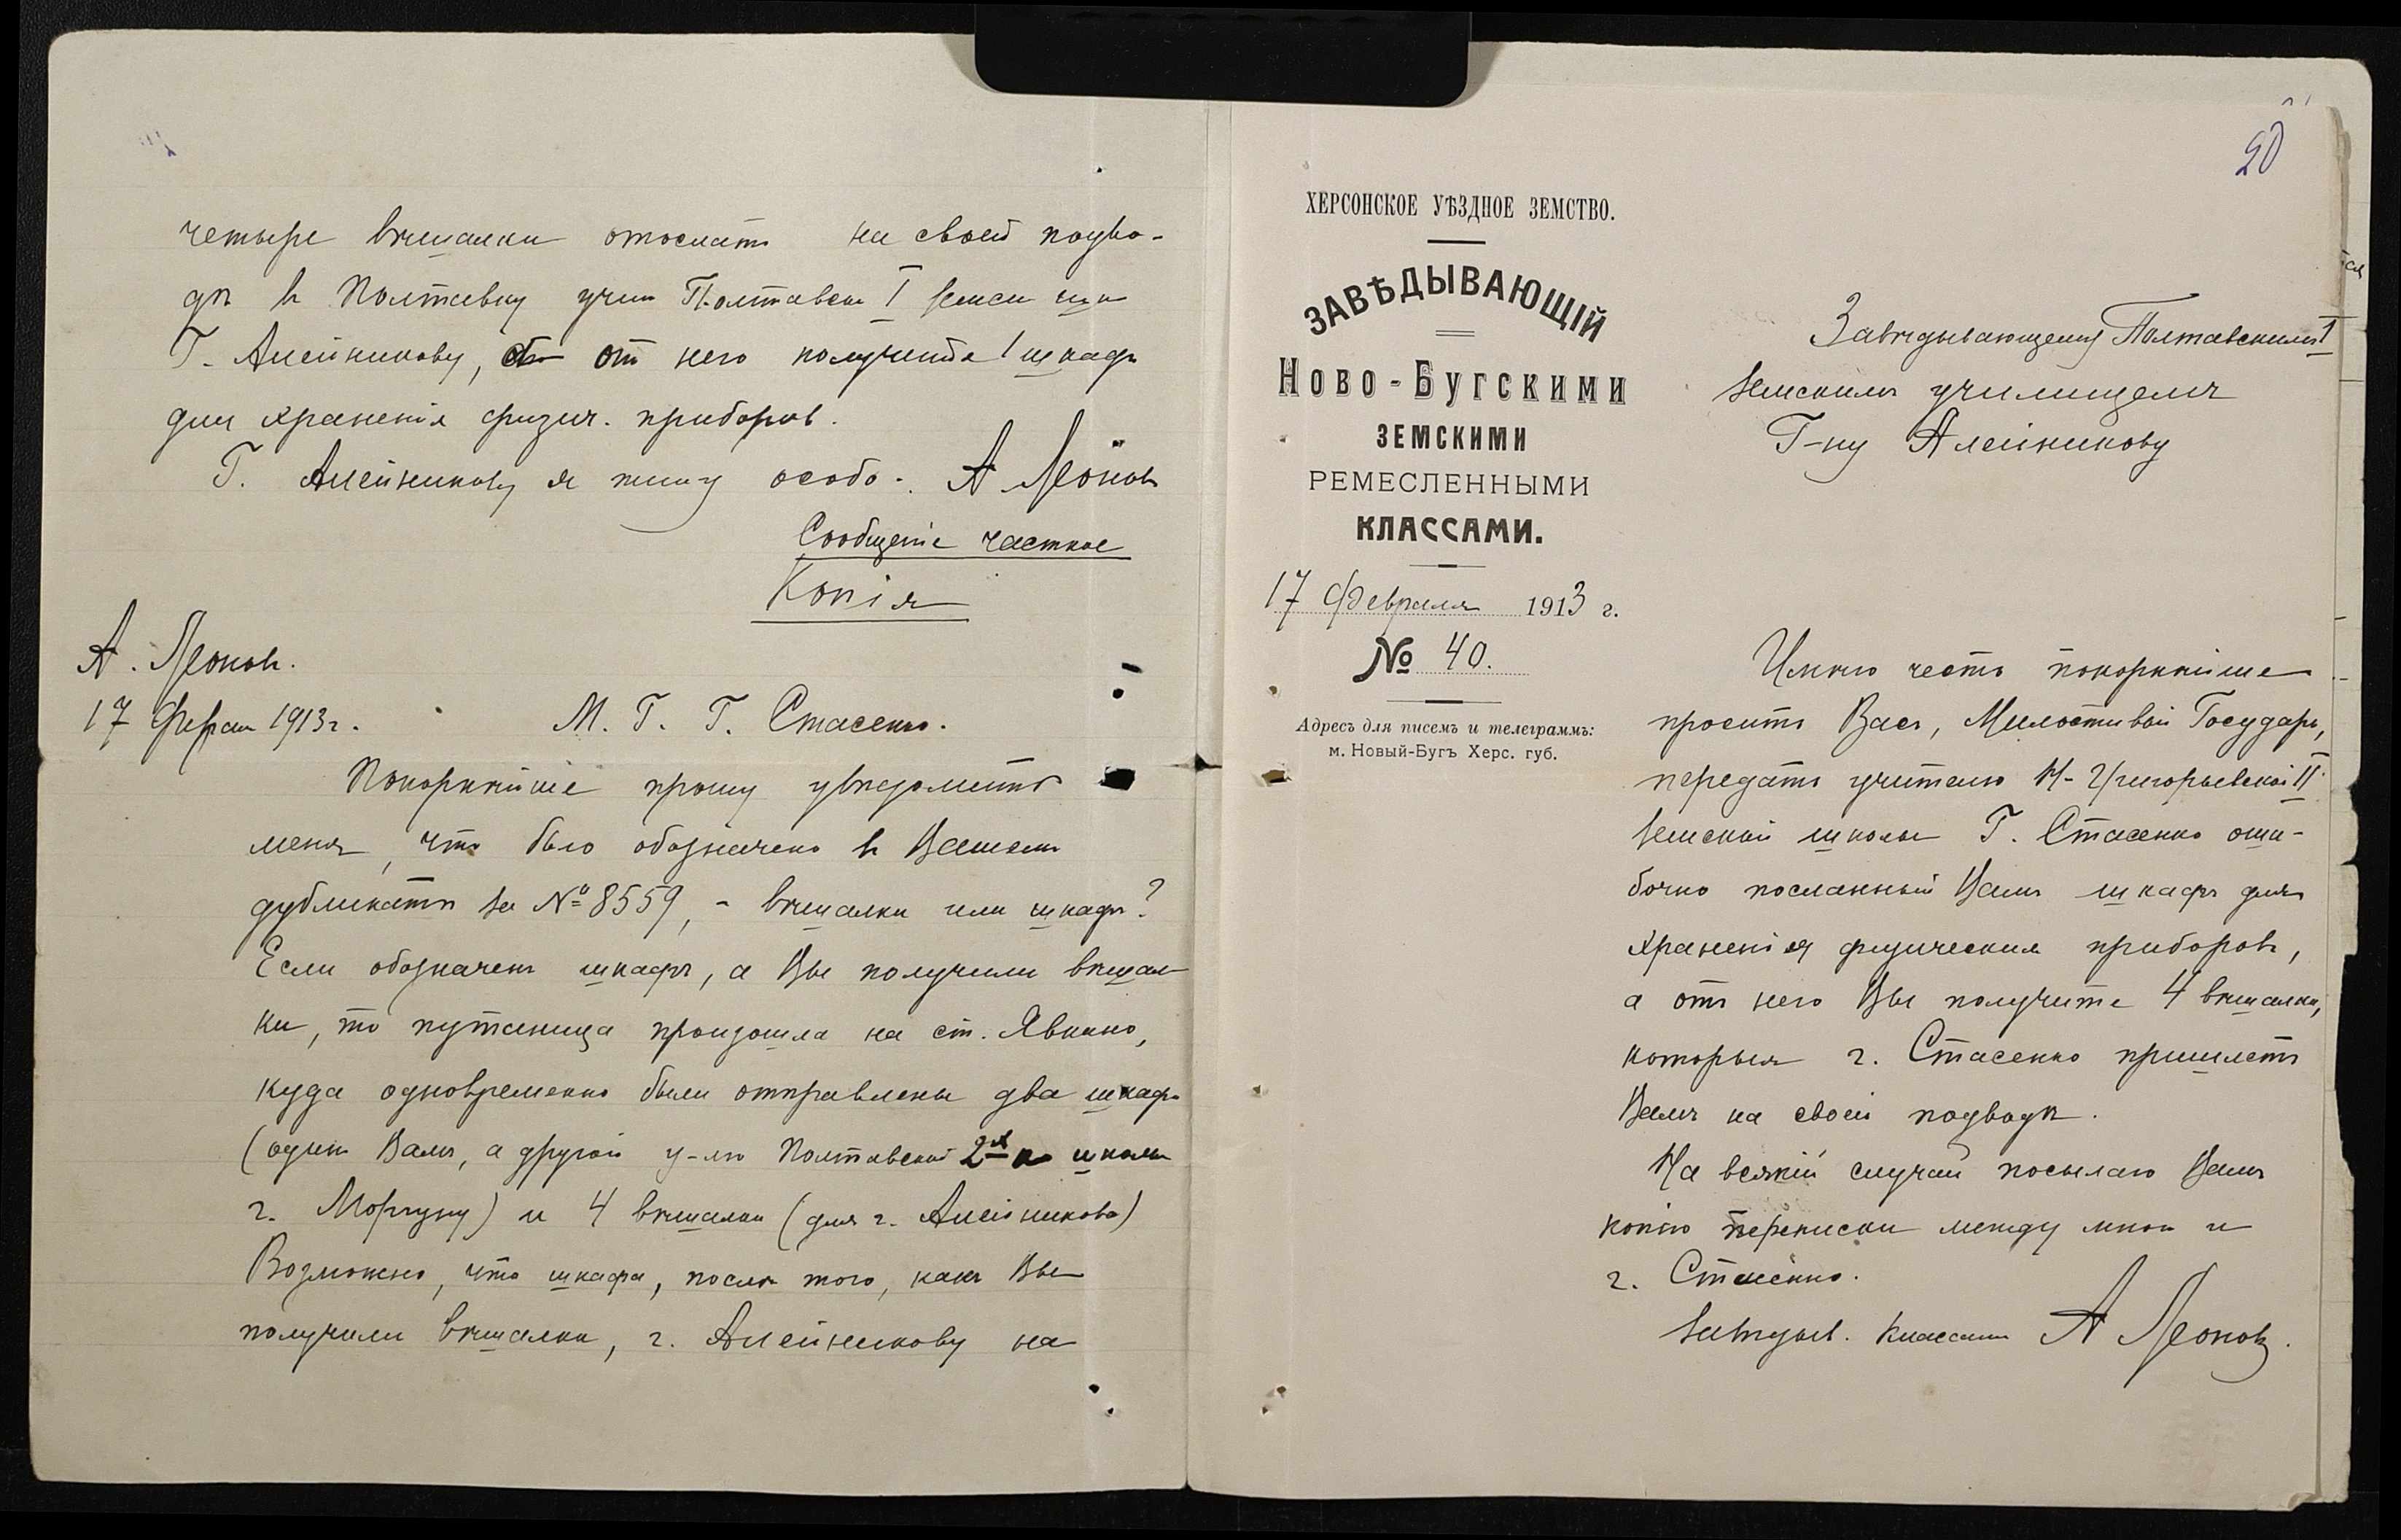 четыре вѣшалки отослать на своей подво-
дѣ в Полтавку учит Полтавск I земск шк
Г. Алейникову, от него получите 1 шкафъ
для храненія физич. приборов.
Г. Алейникову я пишу особо. А Леонов
Сообщеніе частное
Копія
А. Леонов.
17 Феврал 1913 г.
М. Г. Г. Стасенко.
Покорнѣйше прошу увѣдомить
меня, что было обозначено в Вашем
дубликатѣ за № 8559, - вѣшалки или шкафъ?
Если обозначенъ шкафъ, а Вы получили вѣшал-
ки, то путаница произошла на ст. Явкино,
куда одновременно были отправлены два шкафа
(один Вамъ, а другой у-лю Полтавской 2й школы
г. Моргуну) и 4 вѣшалки (для г. Алейникова)
Возможно, что шкафа, послѣ того, какъ Вы
получили вѣшалки, г. Алейникову на
50
ХЕРСОНСКОЕ УѢЗДНОЕ ЗЕМСТВО.
ЗАВѢДЫВАЮЩІЙ
НОВО-БУГСКИМИ
ЗЕМСКИМИ
РЕМЕСЛЕННЫМИ
КЛАССАМИ.
17 Февраля 1913 г.
№ 40.
Адресъ для писемъ и телеграммъ:
м. Новый-Бугъ Херс. губ.
Завѣдывающему Полтавскимъ I
земскимъ училищемъ
Г-ну Алейникову
Имѣю честь покорнѣйше
просить Васъ, Милостивый Государь,
передать учителю Н-Григорьевской II
земской школы Г. Стасенко оши-
бочно посланный Вамъ шкафъ для
храненія физическихъ приборовъ,
а отъ него Вы получите 4 вѣшалки,
которыя г. Стасенко пришлетъ
Вамъ на своей подводѣ.
На всякій случай посылаю Вамъ
копію переписки между мной и
г. Стасенко.
Завѣдыв. классами А Леоновъ.